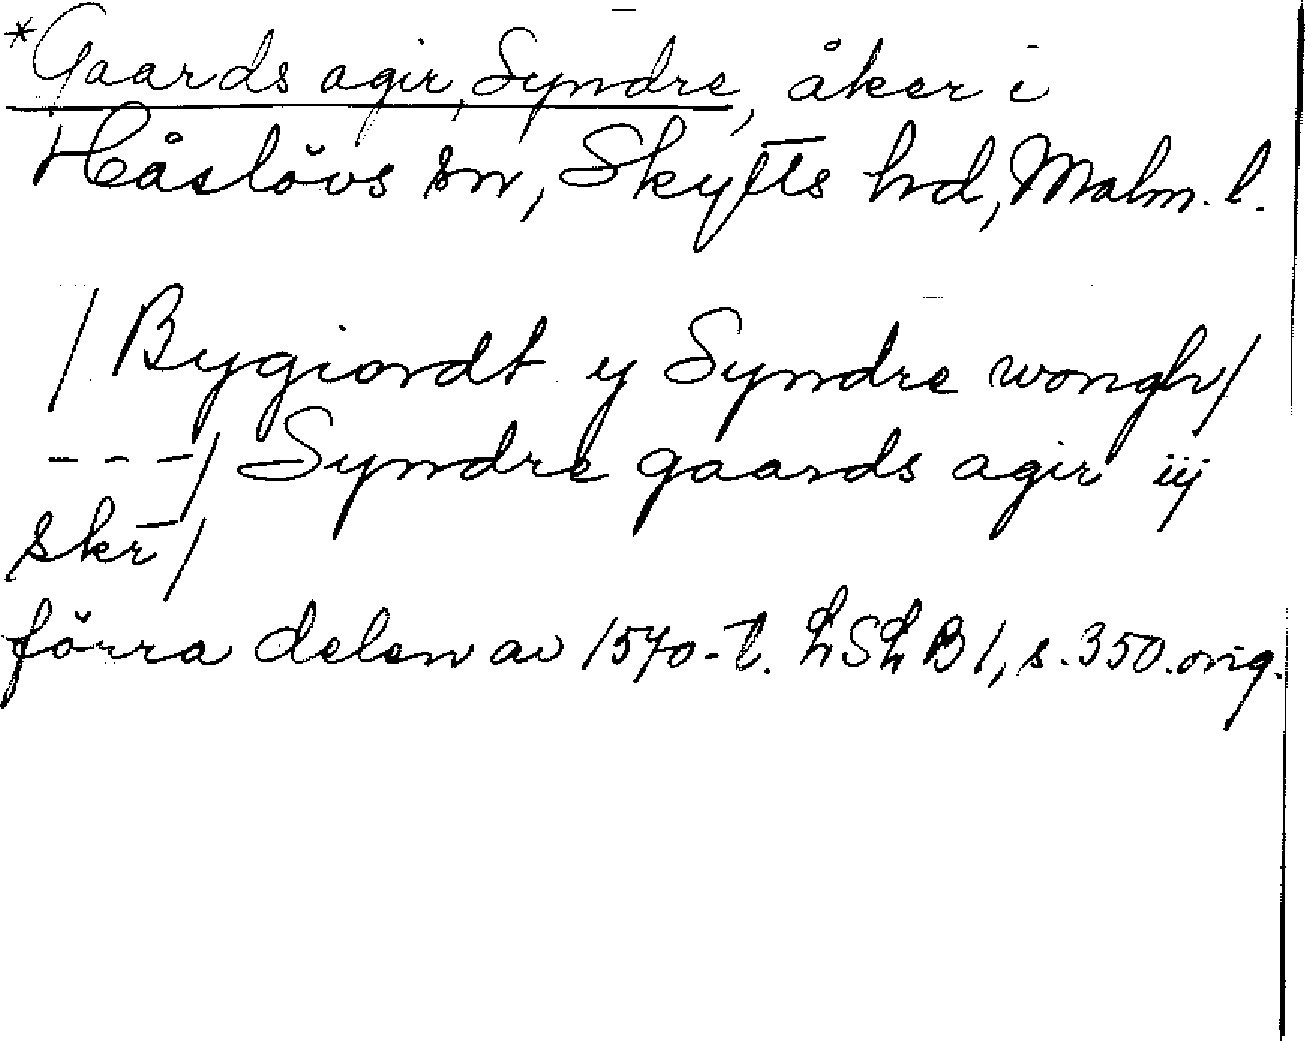 *Gaards agir, Syndre, åker i
Håslövs sn, Skytts hd, Malm. l.
/ Bygiordt y Syndre wongh/
---/ Syndre gaards agir iij
skr/
förra delen av 1570-t. LSL B1, s. 350. orig.